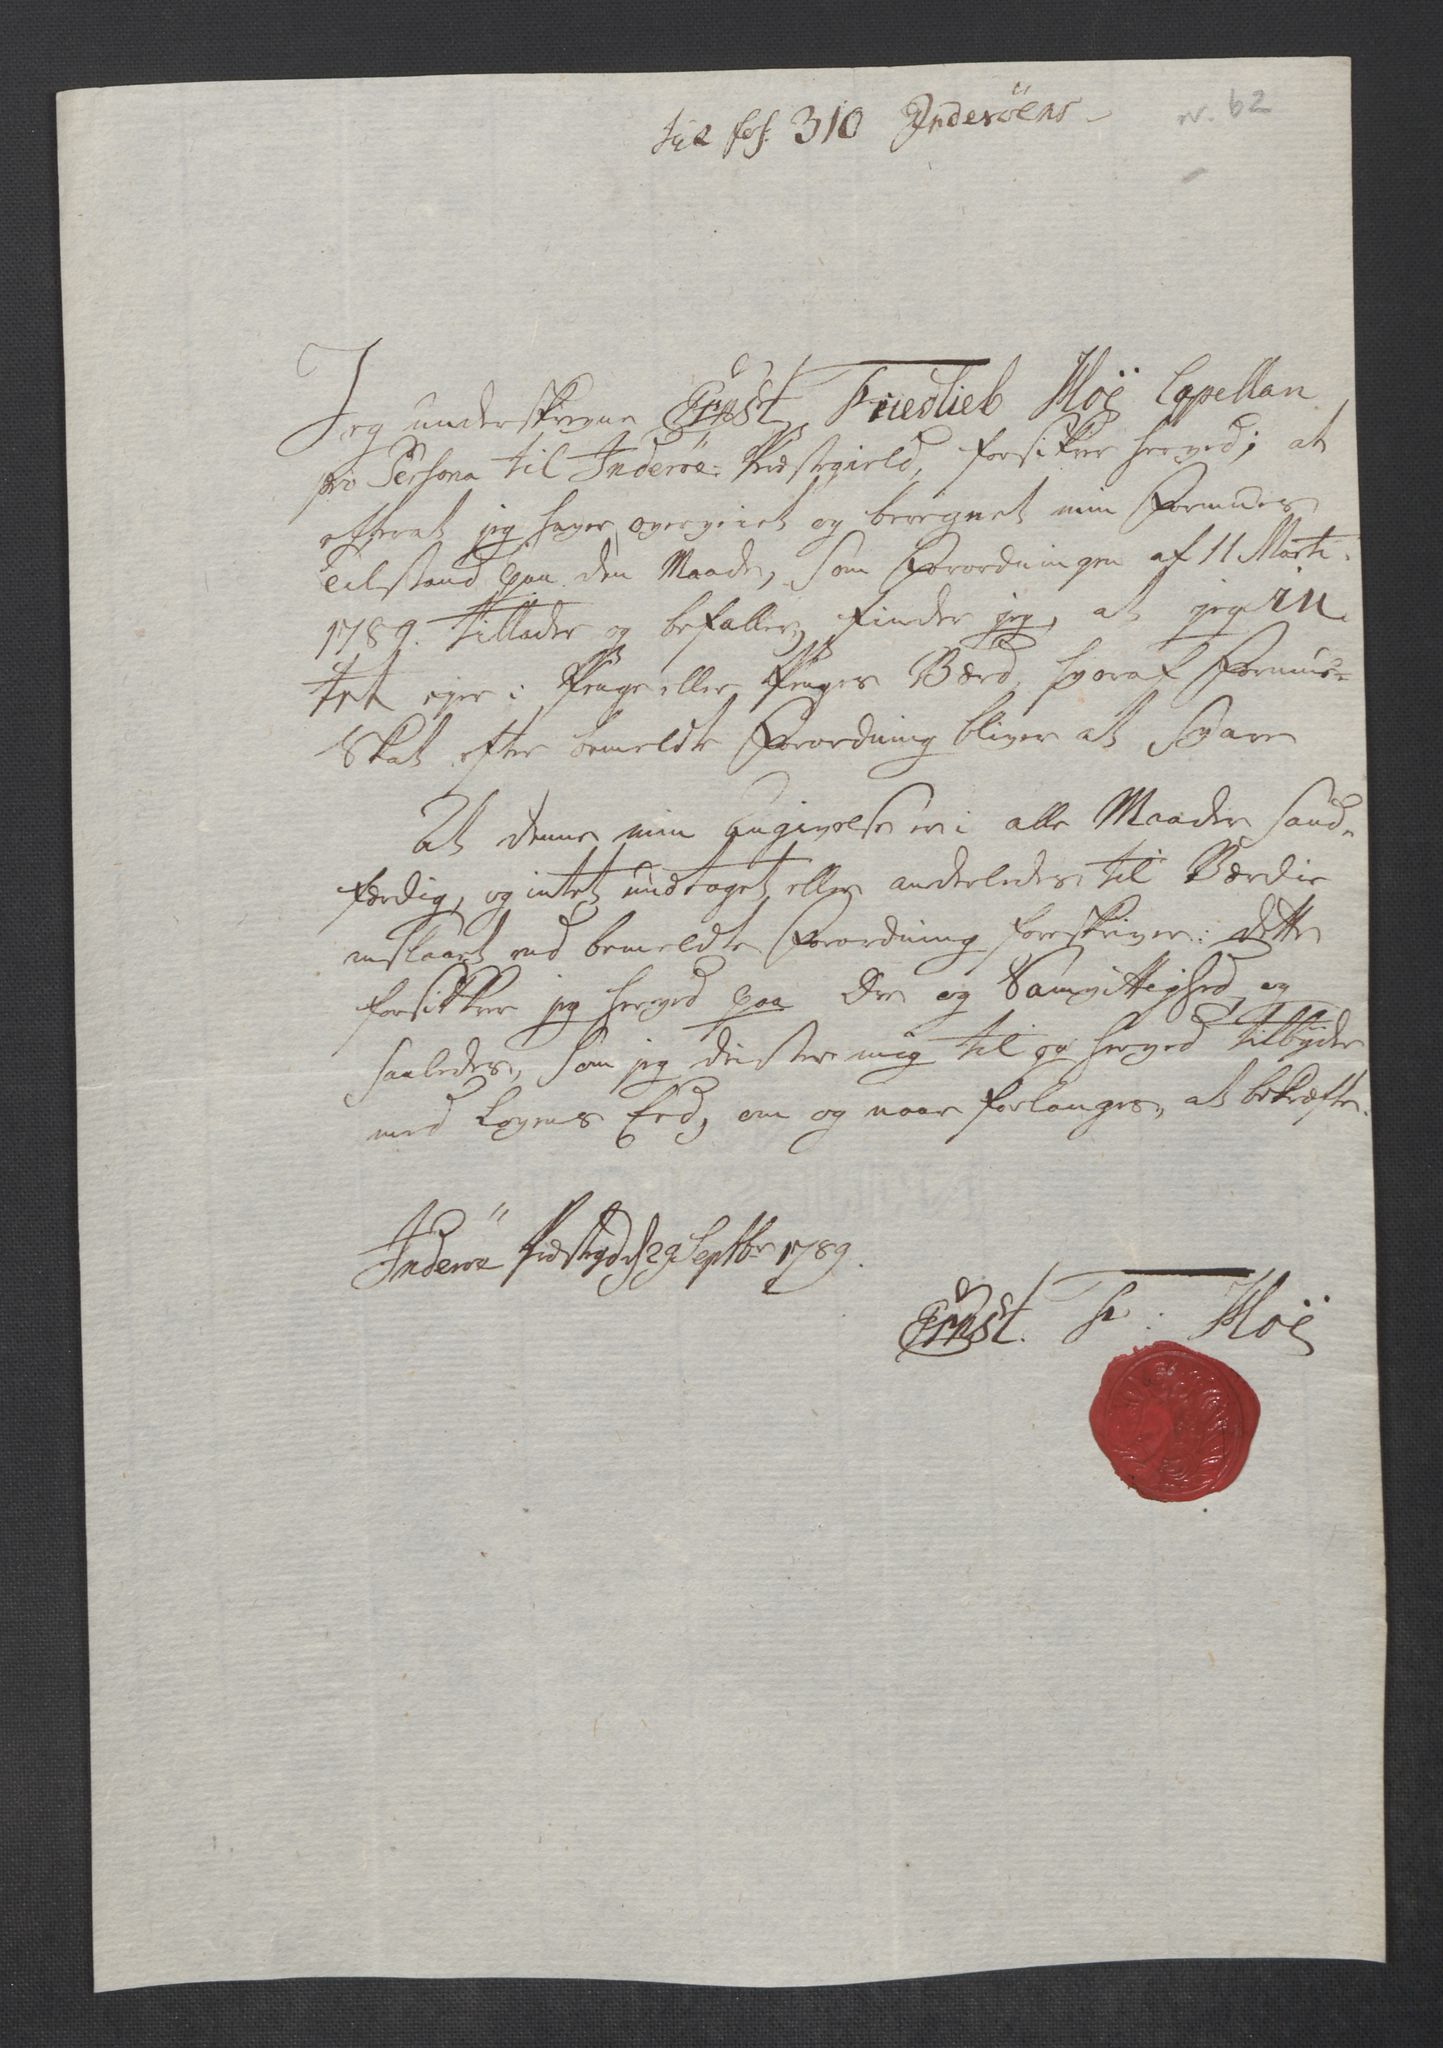 til fol. 310 Inderöens
nr. 62
Jeg underskrevne Ernst Friedlieb Höё Capellan
pro Persona til Inderöe Præstegield, forsikkrer herved; at
efterat jeg haver overveiet og beregnet min Formues
Tilstand paa den Maade, som Forordningen af 11 Martii
1789. tillader og befaller, finder jeg, at jeg in
tet ejer i Penge eller Penges Værd, hvoraf Formue-
Skat efter bemeldte Forordning bliver at svare
At denne min Angivelse er i alle Maader sand-
færdig, og intet undtaget eller anderledes til Værdie
anslaaet end bemeldte Forordning foreskriver: dette
forsikkrer jeg herved paa Ære og Samvittighed, og
saaledes, som jeg drister mig til og herved tilbyder
med Lovens Eed, om og naar forlanges, at bekræfte.
Inderöe Præstegd d 29 Septbr 1789.
Ernst. Fr: Höё